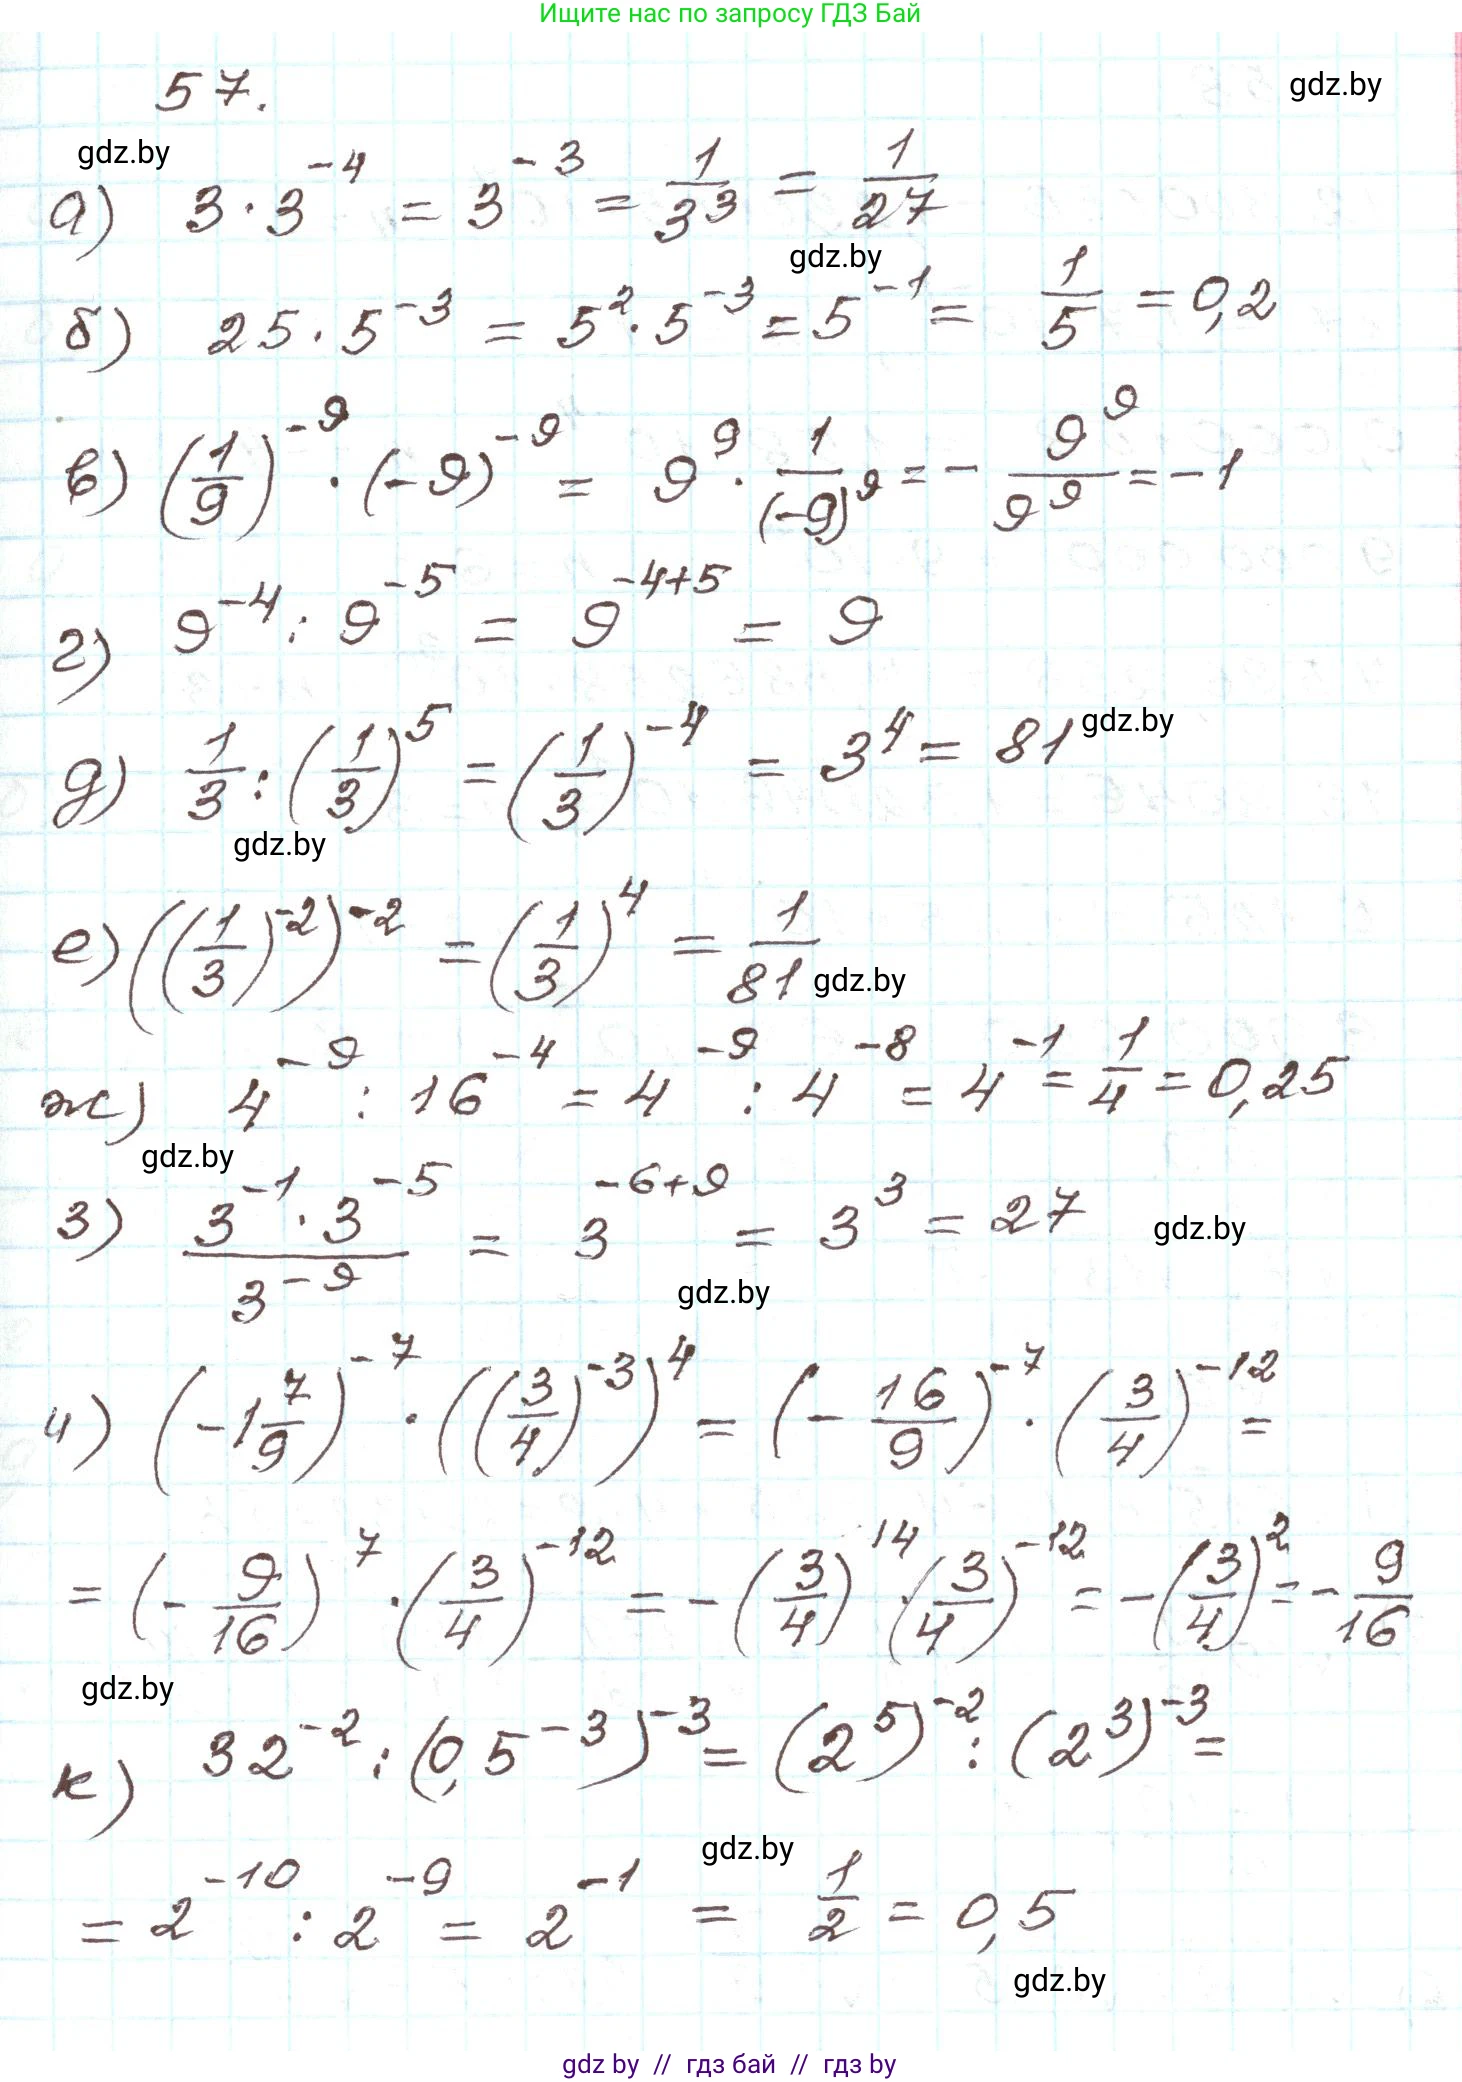 Ищите нас по запросу ГДЗ Бай
57.
gdz.by
gdz.by
а) 3 · 3^{-4} = 3^{-3} = \frac{1}{3^3} = \frac{1}{27}
gdz.by
б) 25 · 5^{-3} = 5^2 · 5^{-3} = 5^{-1} = \frac{1}{5} = 0,2
в) (\frac{1}{9})^{-9} · (-9)^{-9} = 9^9 · \frac{1}{(-9)^9} = -\frac{9^9}{9^9} = -1
г) 9^{-4} : 9^{-5} = 9^{-4+5} = 9
д) \frac{1}{3} : (\frac{1}{3})^5 = (\frac{1}{3})^{-4} = 3^4 = 81
gdz.by
gdz.by
е) ((\frac{1}{3})^{-2})^{-2} = (\frac{1}{3})^4 = \frac{1}{81}
gdz.by
ж) 4^{-9} : 16^{-4} = 4^{-9} : 4^{-8} = 4^{-1} = \frac{1}{4} = 0,25
gdz.by
з) \frac{3^{-1} · 3^{-5}}{3^{-9}} = 3^{-6+9} = 3^3 = 27
gdz.by
gdz.by
и) (-1\frac{7}{9})^{-7} · ((\frac{3}{4})^{-3})^4 = (-\frac{16}{9})^{-7} · (\frac{3}{4})^{-12} =
= (-\frac{9}{16})^7 · (\frac{3}{4})^{-12} = -(\frac{3}{4})^{14} · (\frac{3}{4})^{-12} = -(\frac{3}{4})^2 = -\frac{9}{16}
gdz.by
к) 32^{-2} : (0,5^{-3})^{-3} = (2^5)^{-2} : (2^3)^{-3} =
gdz.by
= 2^{-10} : 2^{-9} = 2^{-1} = \frac{1}{2} = 0,5
gdz.by
gdz by // гдз бай // гдз by